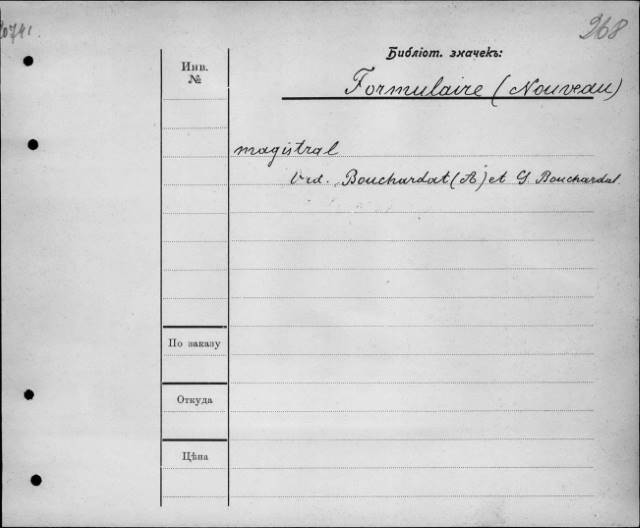 268
Библіот. значекъ:
Инв.
№
Formulaire (Nouveau)
magistral
Vid. Bouchardat (A) et G. Bouchardat.
По заказу
Откуда
Цѣна